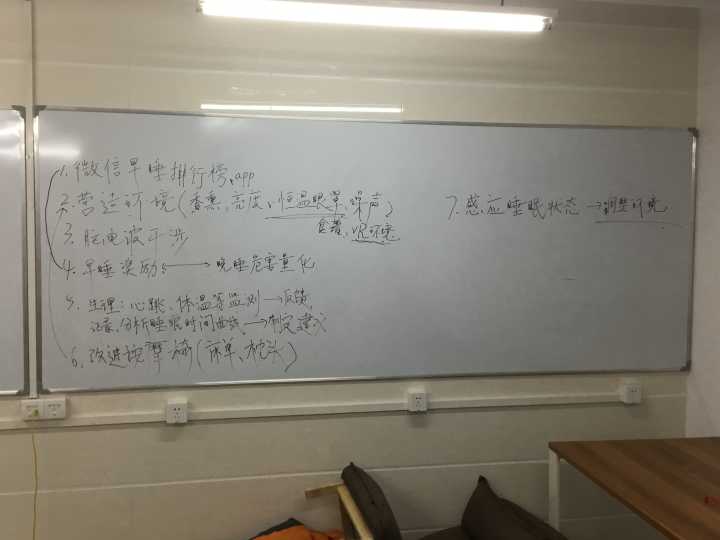 1. 微信早睡排行榜、app
2. 营造环境(香熏、亮度、恒温眼罩、噪声)
音乐、VR环境
3. 脑电波干涉
4. 早睡奖励 ←→ 晚睡危害量化
5. 生理:心跳、体温等监测 → 反馈
记录、分析睡眠时间曲线 → 制定建议
6. 改进按摩椅(床单、枕头)
7. 感应睡眠状态 → 调整环境